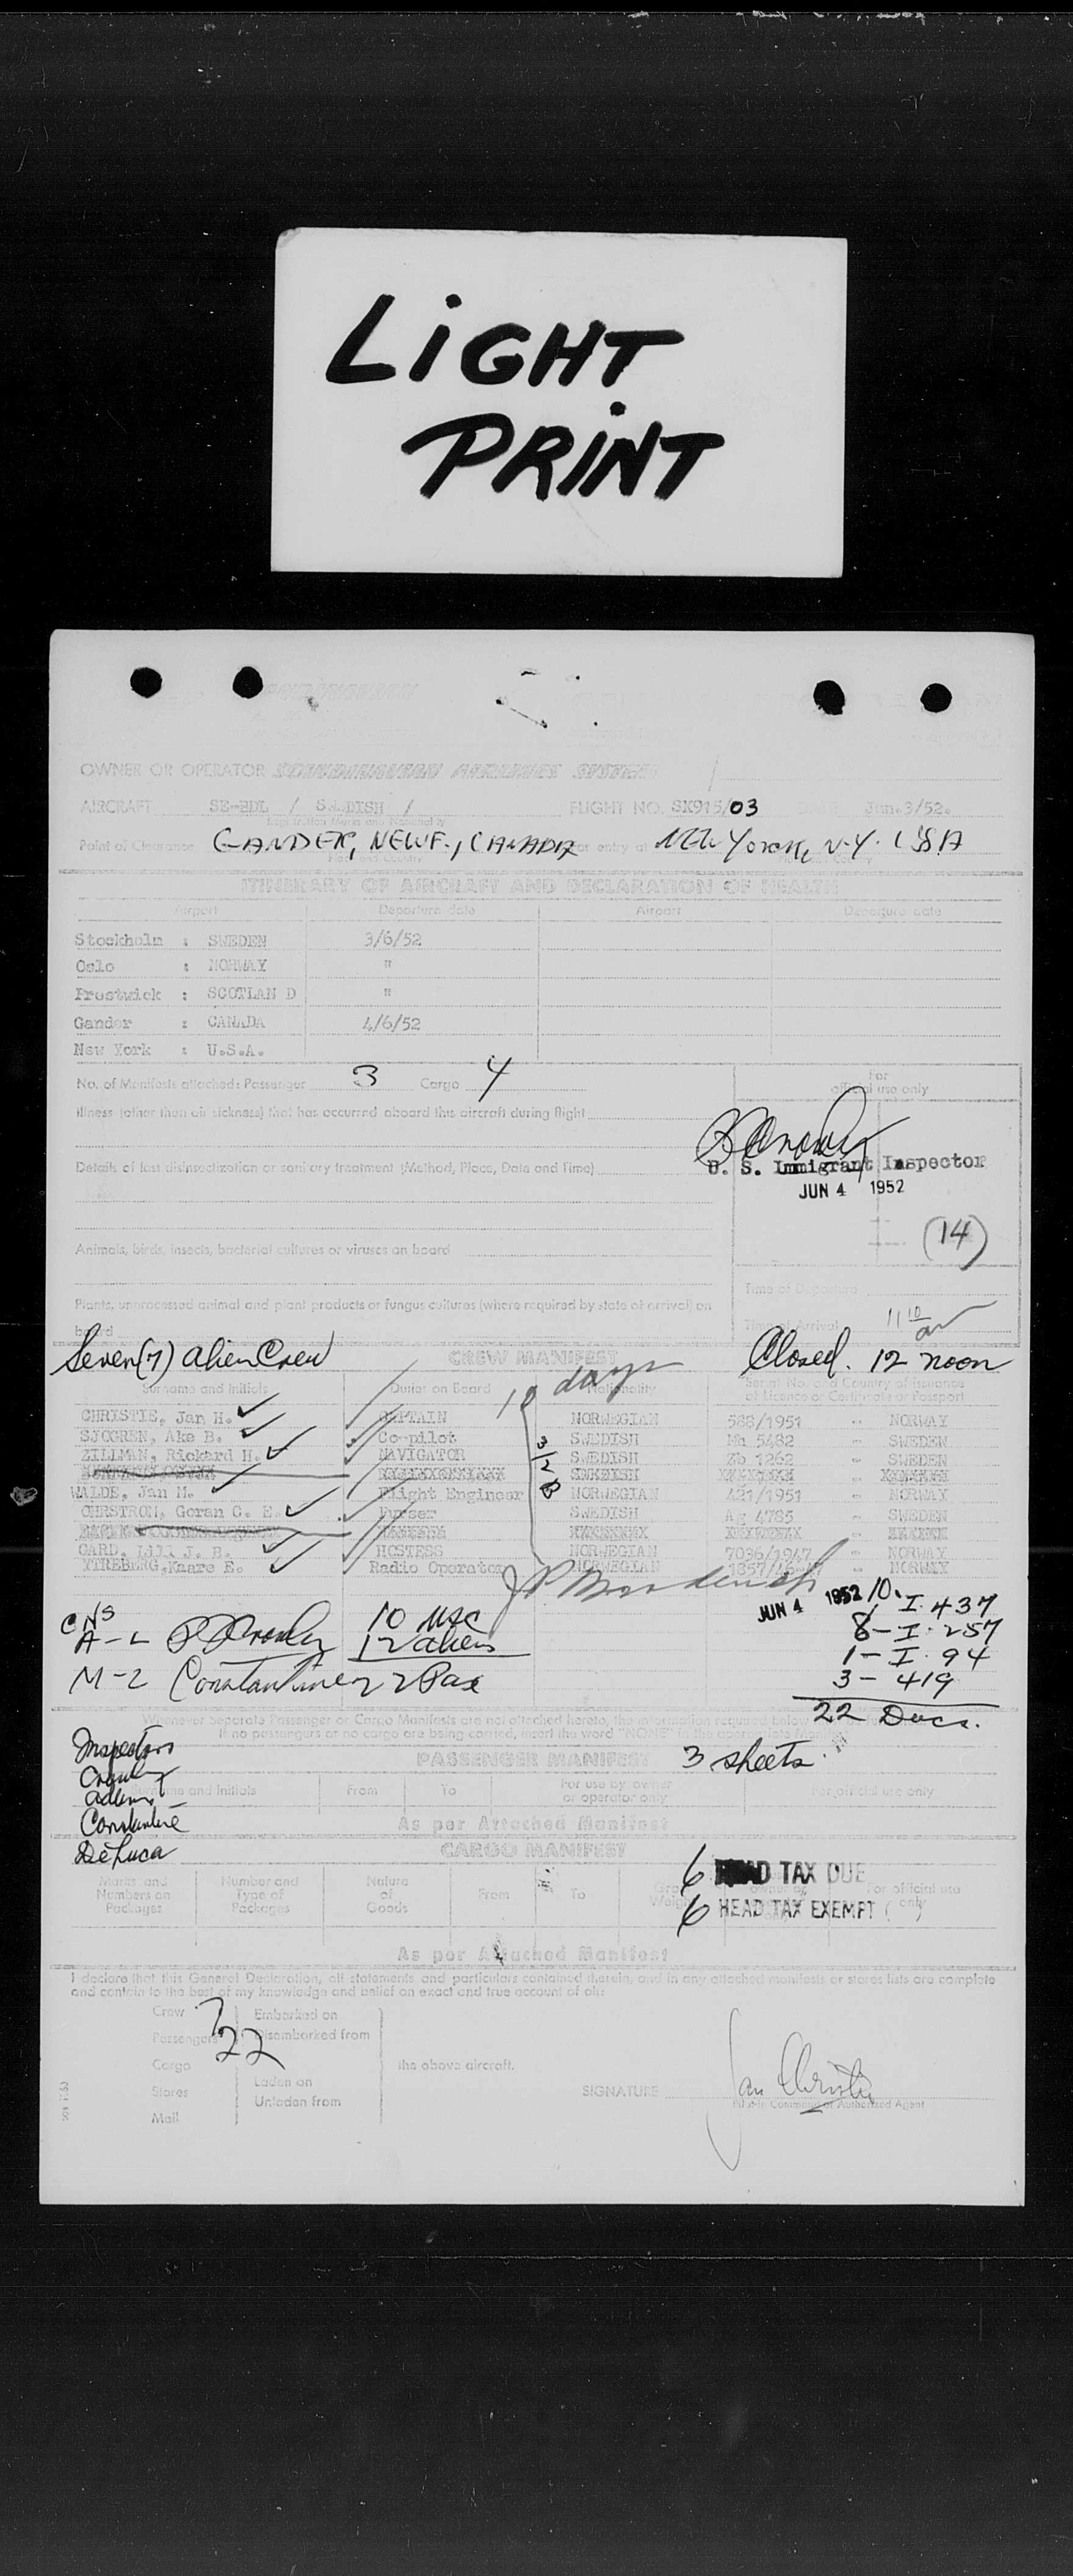 LiGHT
PRiNT
OWNER OR OPERATOR SCANDINAVIAN AIRLINES SYSTEM
AIRCRAFT SE-BDL / SWEDISH / FLIGHT NO. SK915/03 DATE Jun.3/52.
Point of Clearance GANDER, NEWF., CANADA For entry at New York, N.Y. USA
ITINERARY OF AIRCRAFT AND DECLARATION OF HEALTH
Airport Departure date Airport Departure date
Stockholm : SWEDEN 3/6/52
Oslo : NORWAY "
Prestwick : SCOTLAN D "
Gander : CANADA 4/6/52
New York : U.S.A.
No. of Manifests attached: Passenger 3 Cargo 4
For
official use only
Illness (other than air sickness) that has occurred aboard this aircraft during flight
Details of last disinsectization or sanitary treatment (Method, Place, Date and Time)
U. S. Immigrant Inspector
JUN 4 1952
(14)
Animals, birds, insects, bacterial cultures or viruses on board
Time of Departure
Plants, unprocessed animal and plant products or fungus cultures (where required by state of arrival) on
board
Time of Arrival 11 10 am
Seven (7) alien Crew CREW MANIFEST Closed. 12 noon
10 days
Surname and Initials Duties on Board Nationality Serial No. and Country of Issuance
of Licence or Certificate or Passport
CHRISTIE, Jan H. CAPTAIN NORWEGIAN 588/1951 -- NORWAY
SJOGREN, Ake B. Co-pilot SWEDISH Ma 5482 - SWEDEN
ZILLMAN, Rickard H. NAVIGATOR SWEDISH Zb 1262 - SWEDEN
WALDE, Jan M. Flight Engineer NORWEGIAN A21/1951 - NORWAY
OHRSTROM, Goran C. E. Purser SWEDISH Ag 4785 - SWEDEN
GARD, Lill J. B. HOSTESS NORWEGIAN 7036/1947 - NORWAY
YTREBERG, Kaare E. Radio Operator NORWEGIAN - NORWAY
JUN 4 1952
10. I. 437
8 - I. 257
1 - I. 94
3 - 419
22 Docs.
CNS
A-L 10 USC
12 aliens
M-2 Constantine 22 Pax
Whenever Separate Passenger or Cargo Manifests are not attached hereto, the information required below
If no passengers or no cargo are being carried, insert the word "NONE"
Inspectors
Crowley
Adams
Constantine
DeLuca
PASSENGER MANIFEST 3 sheets
Surname and Initials From To For use by owner
or operator only For official use only
As per Attached Manifest
CARGO MANIFEST
6 HEAD TAX DUE
6 HEAD TAX EXEMPT ( )
Marks and
Numbers on
Packages
Number and
Type of
Packages
Nature
of
Goods
From To
Gross
Weight
For official use
only
As per Attached Manifest
I declare that this General Declaration, all statements and particulars contained therein, and in any attached manifests or stores lists are complete
and contain to the best of my knowledge and belief an exact and true account of all:
Crew 7 Embarked on
Passengers 22 Disembarked from
Cargo the above aircraft.
Stores Laden on
Mail Unladen from
SIGNATURE Jan Christie
Pilot in Command or Authorized Agent